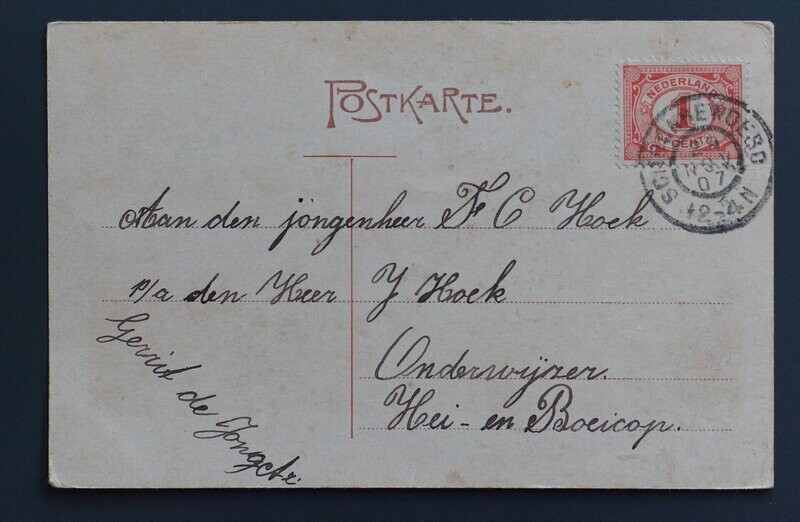 POSTKARTE.
NEDERLAND
1
CENT
NOV
07
12-4N
Aan den jongenheer F C Hoek
p/a den Heer J Hoek
Onderwijzer.
Hei- en Boeicop.
Gerrit de